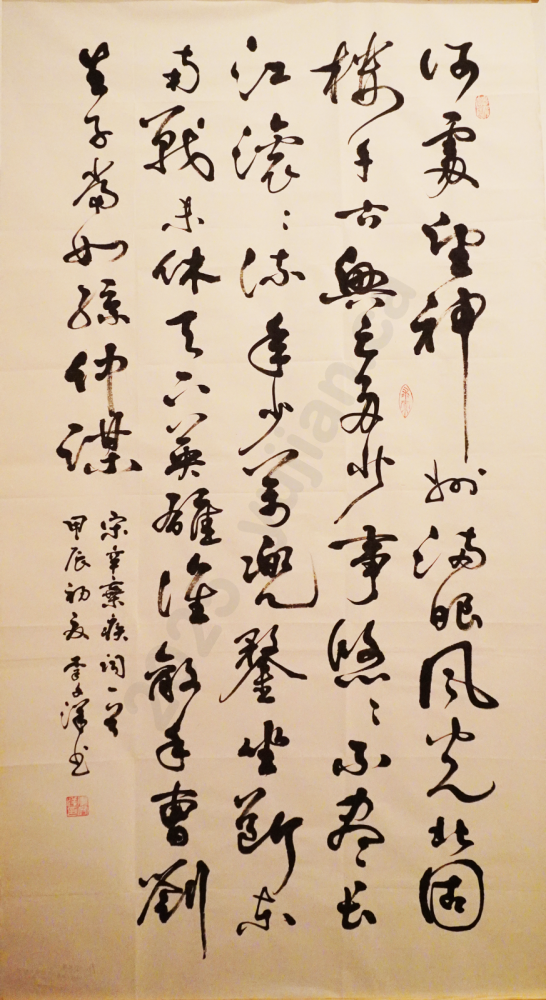 何處望神州满眼風光北固
樓千古興亡多少事悠〻不盡长
江滚〻流年少萬兜鍪坐断东
南戰未休天下英雄誰敵手曹劉
生子當如孫仲謀
宋辛棄疾词一首
甲辰初夏李泽书
2025 yujian.ca